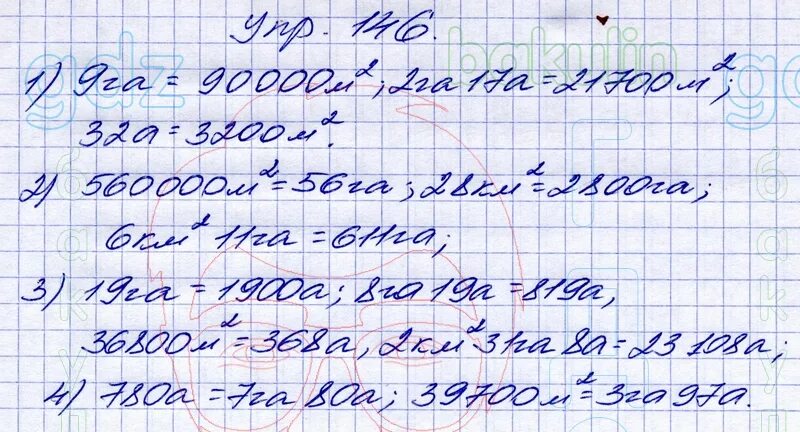 Упр. 146.
1) 9га = 90000м²; 2га 17а = 21700м²;
32а = 3200м².
2) 560000м² = 56га; 28км² = 2800га;
6км² 11га = 611га;
3) 19га = 1900а; 8га 19а = 819а,
36800м² = 368а, 2км² 31га 8а = 23108а;
4) 780а = 7га 80а; 39700м² = 3га 97а.
gdz
bakulin